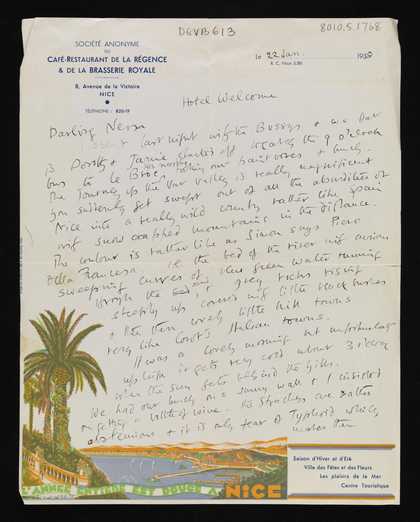 DGVB613
8010.5.1768
SOCIÉTÉ ANONYME
DU
CAFÉ-RESTAURANT DE LA RÉGENCE
& DE LA BRASSERIE ROYALE
8, Avenue de la Victoire
NICE
TÉLÉPHONE : 820-19
le 22 Jan. 1930
R. C. Nice
Hotel Welcome
Darling Nessa
last night with the Bussys & we
Dorothy & Janie started off catching the 9 o'clock
bus to le Broc taking our paintboxes & lunch.
The journey up the Var valley is really magnificent
you suddenly get swept out of all the absurdities of
Nice into a really wild country rather like Spain
with snow capped mountains in the distance.
The colour is rather like as Simon says Piero
della Francesca i.e. the bed of the river with curious
sweeping curves of blue green water running
through the bed & grey rocks rising
steeply up covered with little black
& then lovely little hill towns
very like Corot's Italian towns.
It was a lovely morning but unfortunately
up high it gets very cold about 3 o'clock
when the sun gets behind the hills.
We had our lunch on a sunny wall & I insisted
on getting a bottle of wine. The Stracheys are rather
abstemious & it is only fear of Typhoid which
makes them
L'ANNÉE ENTIÈRE EST DOUCE A NICE
Saison d'Hiver et d'Été
Ville des Fêtes et des Fleurs
Les plaisirs de la Mer
Centre Touristique